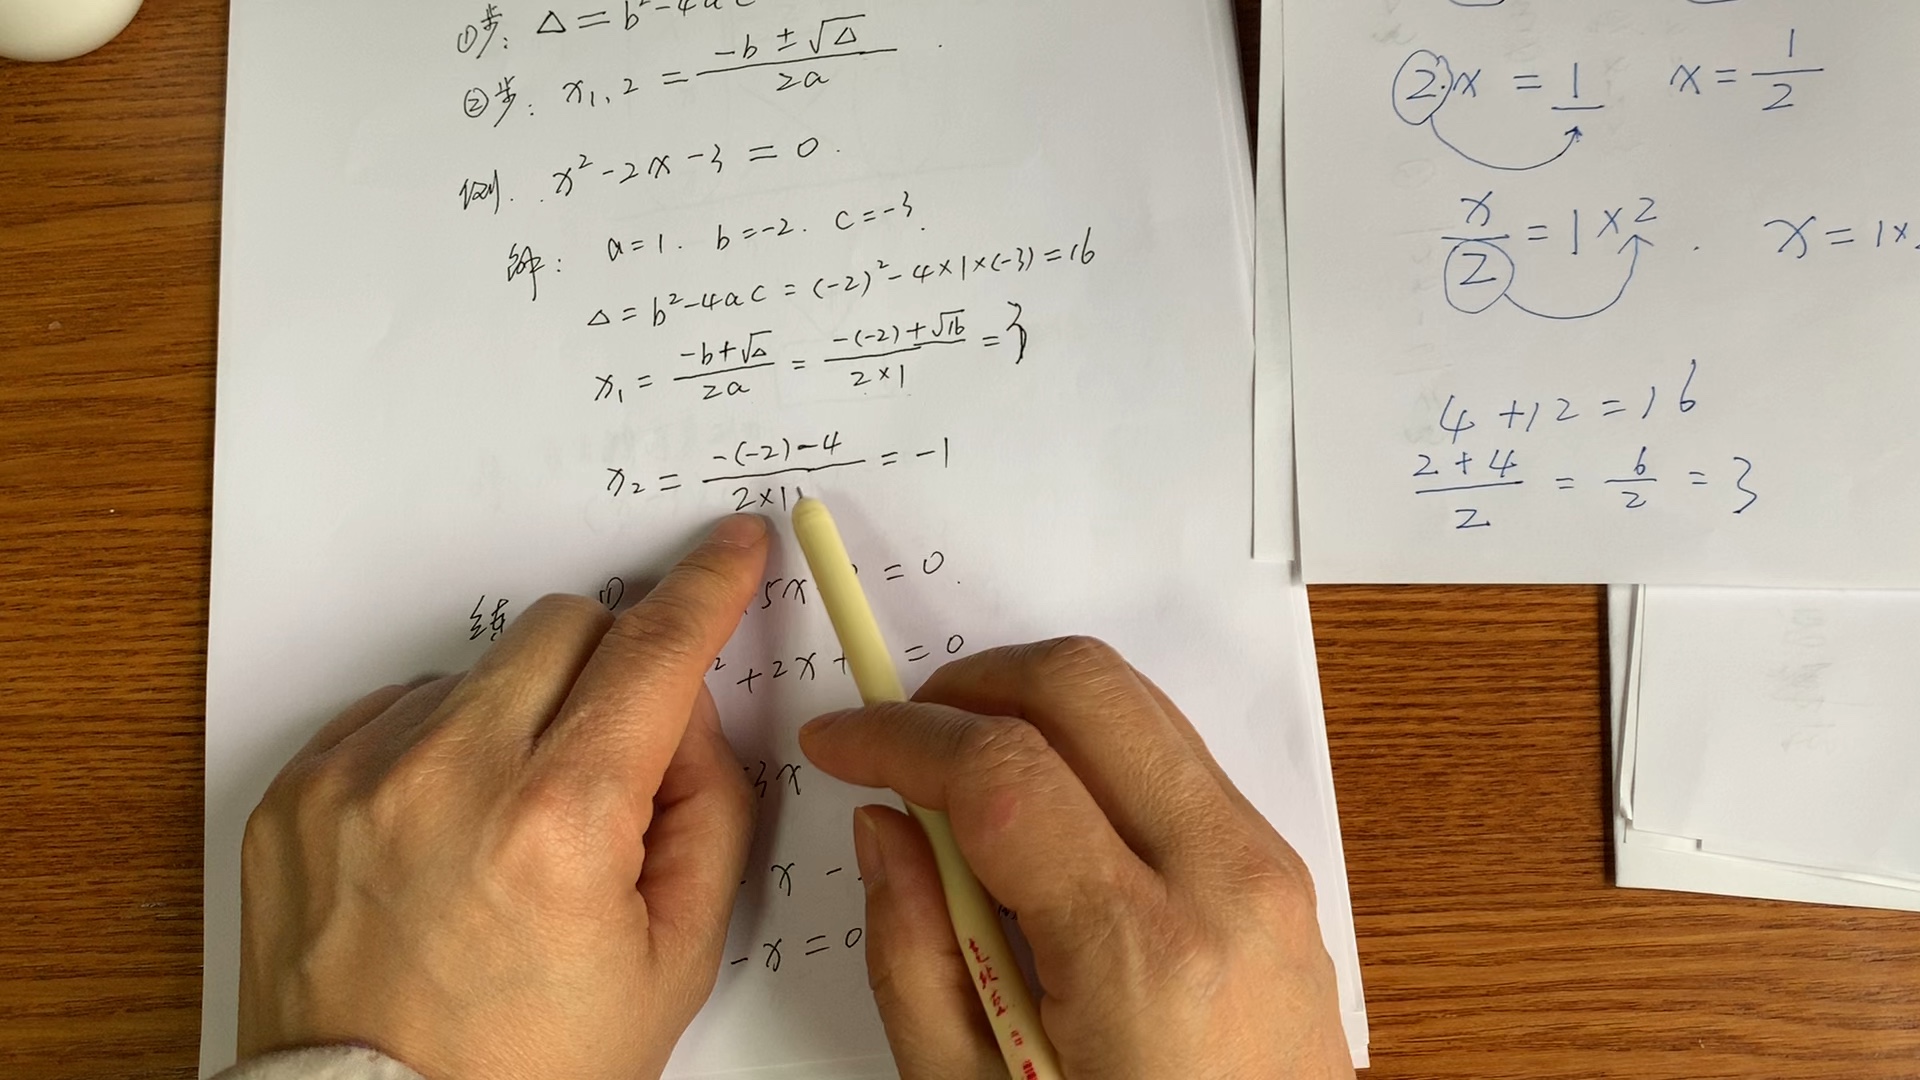 ①步: △ = b²-4ac
②步: x₁,₂ = (-b ± √△)/(2a) .
例. x² - 2x - 3 = 0 .
解: a = 1 . b = -2 . c = -3 .
△ = b² - 4ac = (-2)² - 4×1×(-3) = 16
x₁ = (-b+√△)/(2a) = (-(-2)+√16)/(2×1) = 3
x₂ = (-(-2)-4)/(2×1) = -1
练 ① 5x = 0 .
² + 2x + = 0
3x
- x -
- x = 0
2·x = 1 x = 1/2
x/2 = 1×2 . x = 1×
4 + 12 = 16
(2+4)/2 = 6/2 = 3